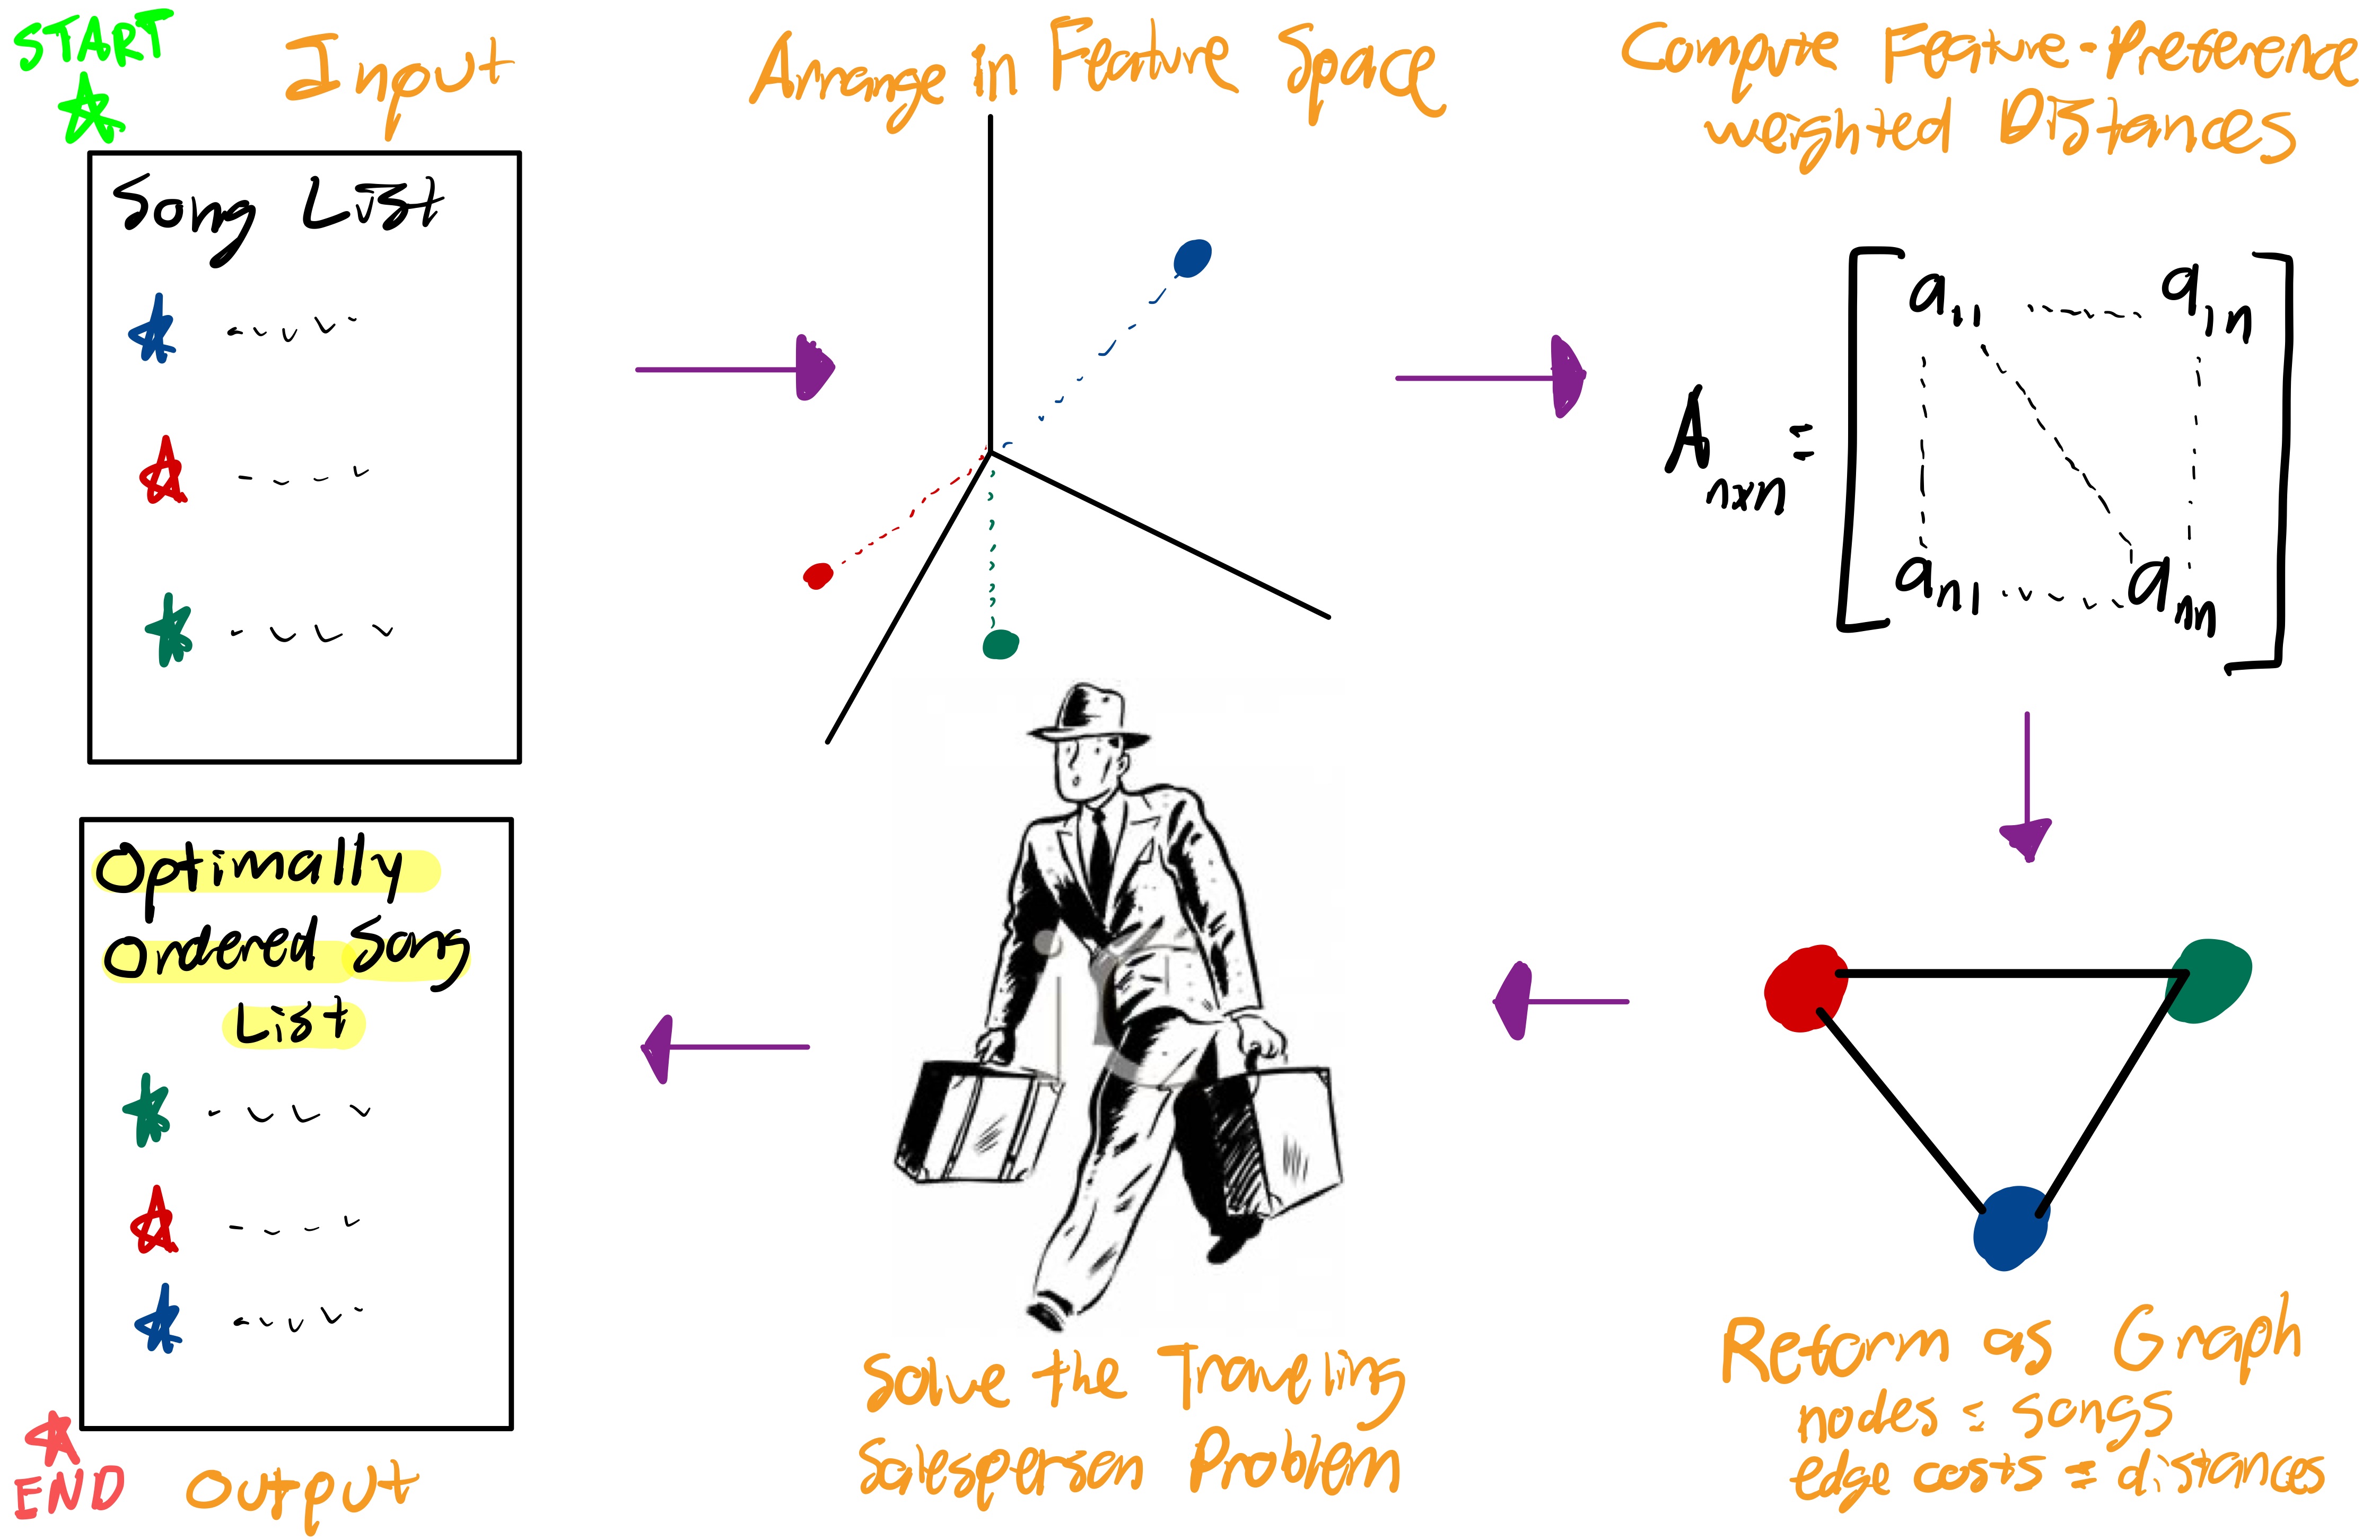 START
Input
Song List
Arrange in Feature Space
Compute Feature-Preference
weighted Distances
A nxn =
a11 ...... a1n
an1 ...... ann
Reform as Graph
nodes = songs
edge costs = distances
Solve the Traveling
Salesperson Problem
Optimally
Ordered Song
List
END
Output